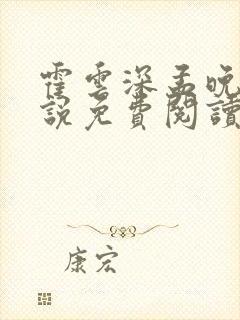 霍雲深孟晚
說免費閱讀
康宏